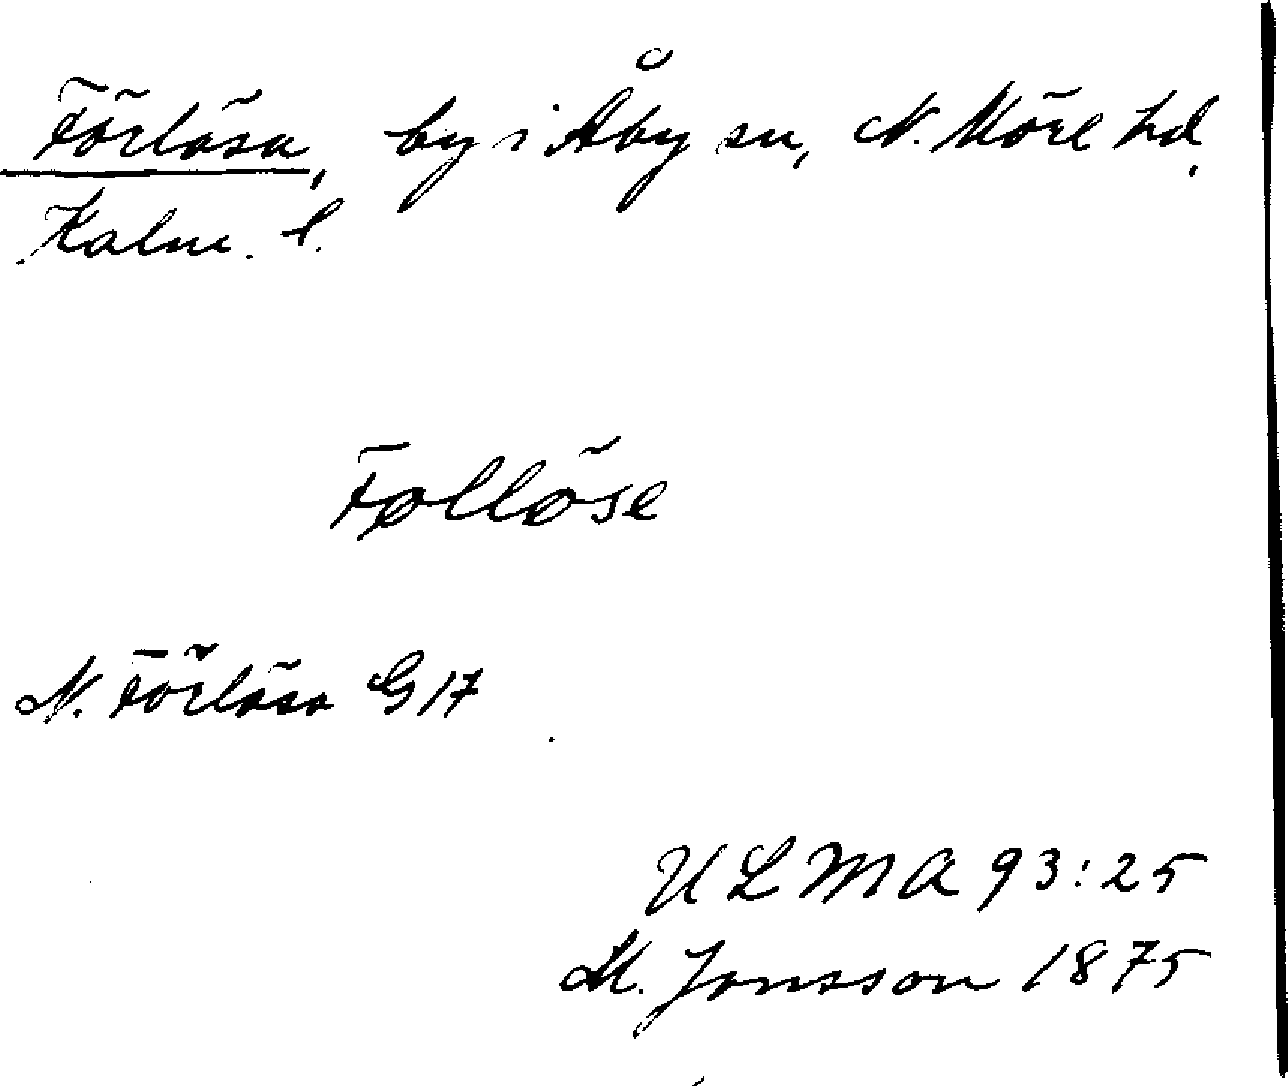 Förlösa, by i Åby sn, N. Möre hd,
Kalm. l.
Følløse
N. Förlösa G 17
ULMA 93:25
M. Jonsson 1875